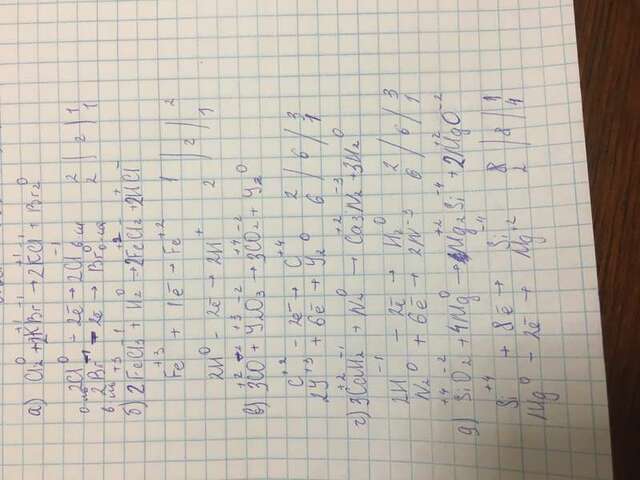 а) Cl₂⁰ + 2K⁺¹Br⁻¹ → 2K⁺¹Cl⁻¹ + Br₂⁰
2Cl⁰ - 2ē → 2Cl⁻¹ 2 | 2 | 1
2Br⁻¹ - 2ē → Br₂⁰ 2 | | 1
б) 2FeCl₃ + H₂⁰ → 2FeCl₂ + 2HCl
Fe⁺³ + 1ē → Fe⁺² 1 | 2 | 2
2H⁰ - 2ē → 2H⁺ 2 | | 1
в) 3CO + Y₂O₃ → 3CO₂ + Y₂⁰
C⁺² - 2ē → C⁺⁴ 2 | 6 | 3
2Y⁺³ + 6ē → Y₂⁰ 6 | | 1
г) 3CaH₂ + N₂⁰ → Ca₃N₂ + 3H₂⁰
2H⁻¹ - 2ē → H₂⁰ 2 | 6 | 3
N₂⁰ + 6ē → 2N⁻³ 6 | | 1
д) Si⁺⁴O₂⁻² + 4Mg⁰ → Mg₂⁺²Si⁻⁴ + 2Mg⁺²O⁻²
Si⁺⁴ + 8ē → Si⁻⁴ 8 | 8 | 1
Mg⁰ - 2ē → Mg⁺² 2 | | 4